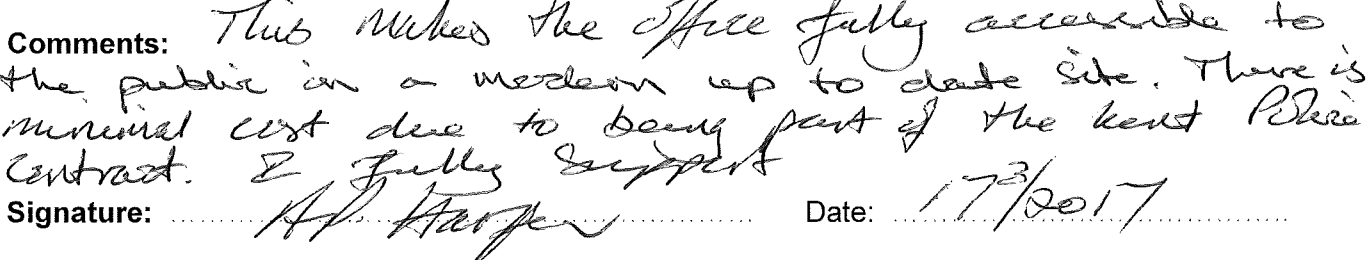 Comments: This makes the office fully accessible to
the public in a modern up to date site. There is
minimal cost due to being part of the Kent Police
contract. I fully support
Signature: AP Harper Date: 17/3/2017